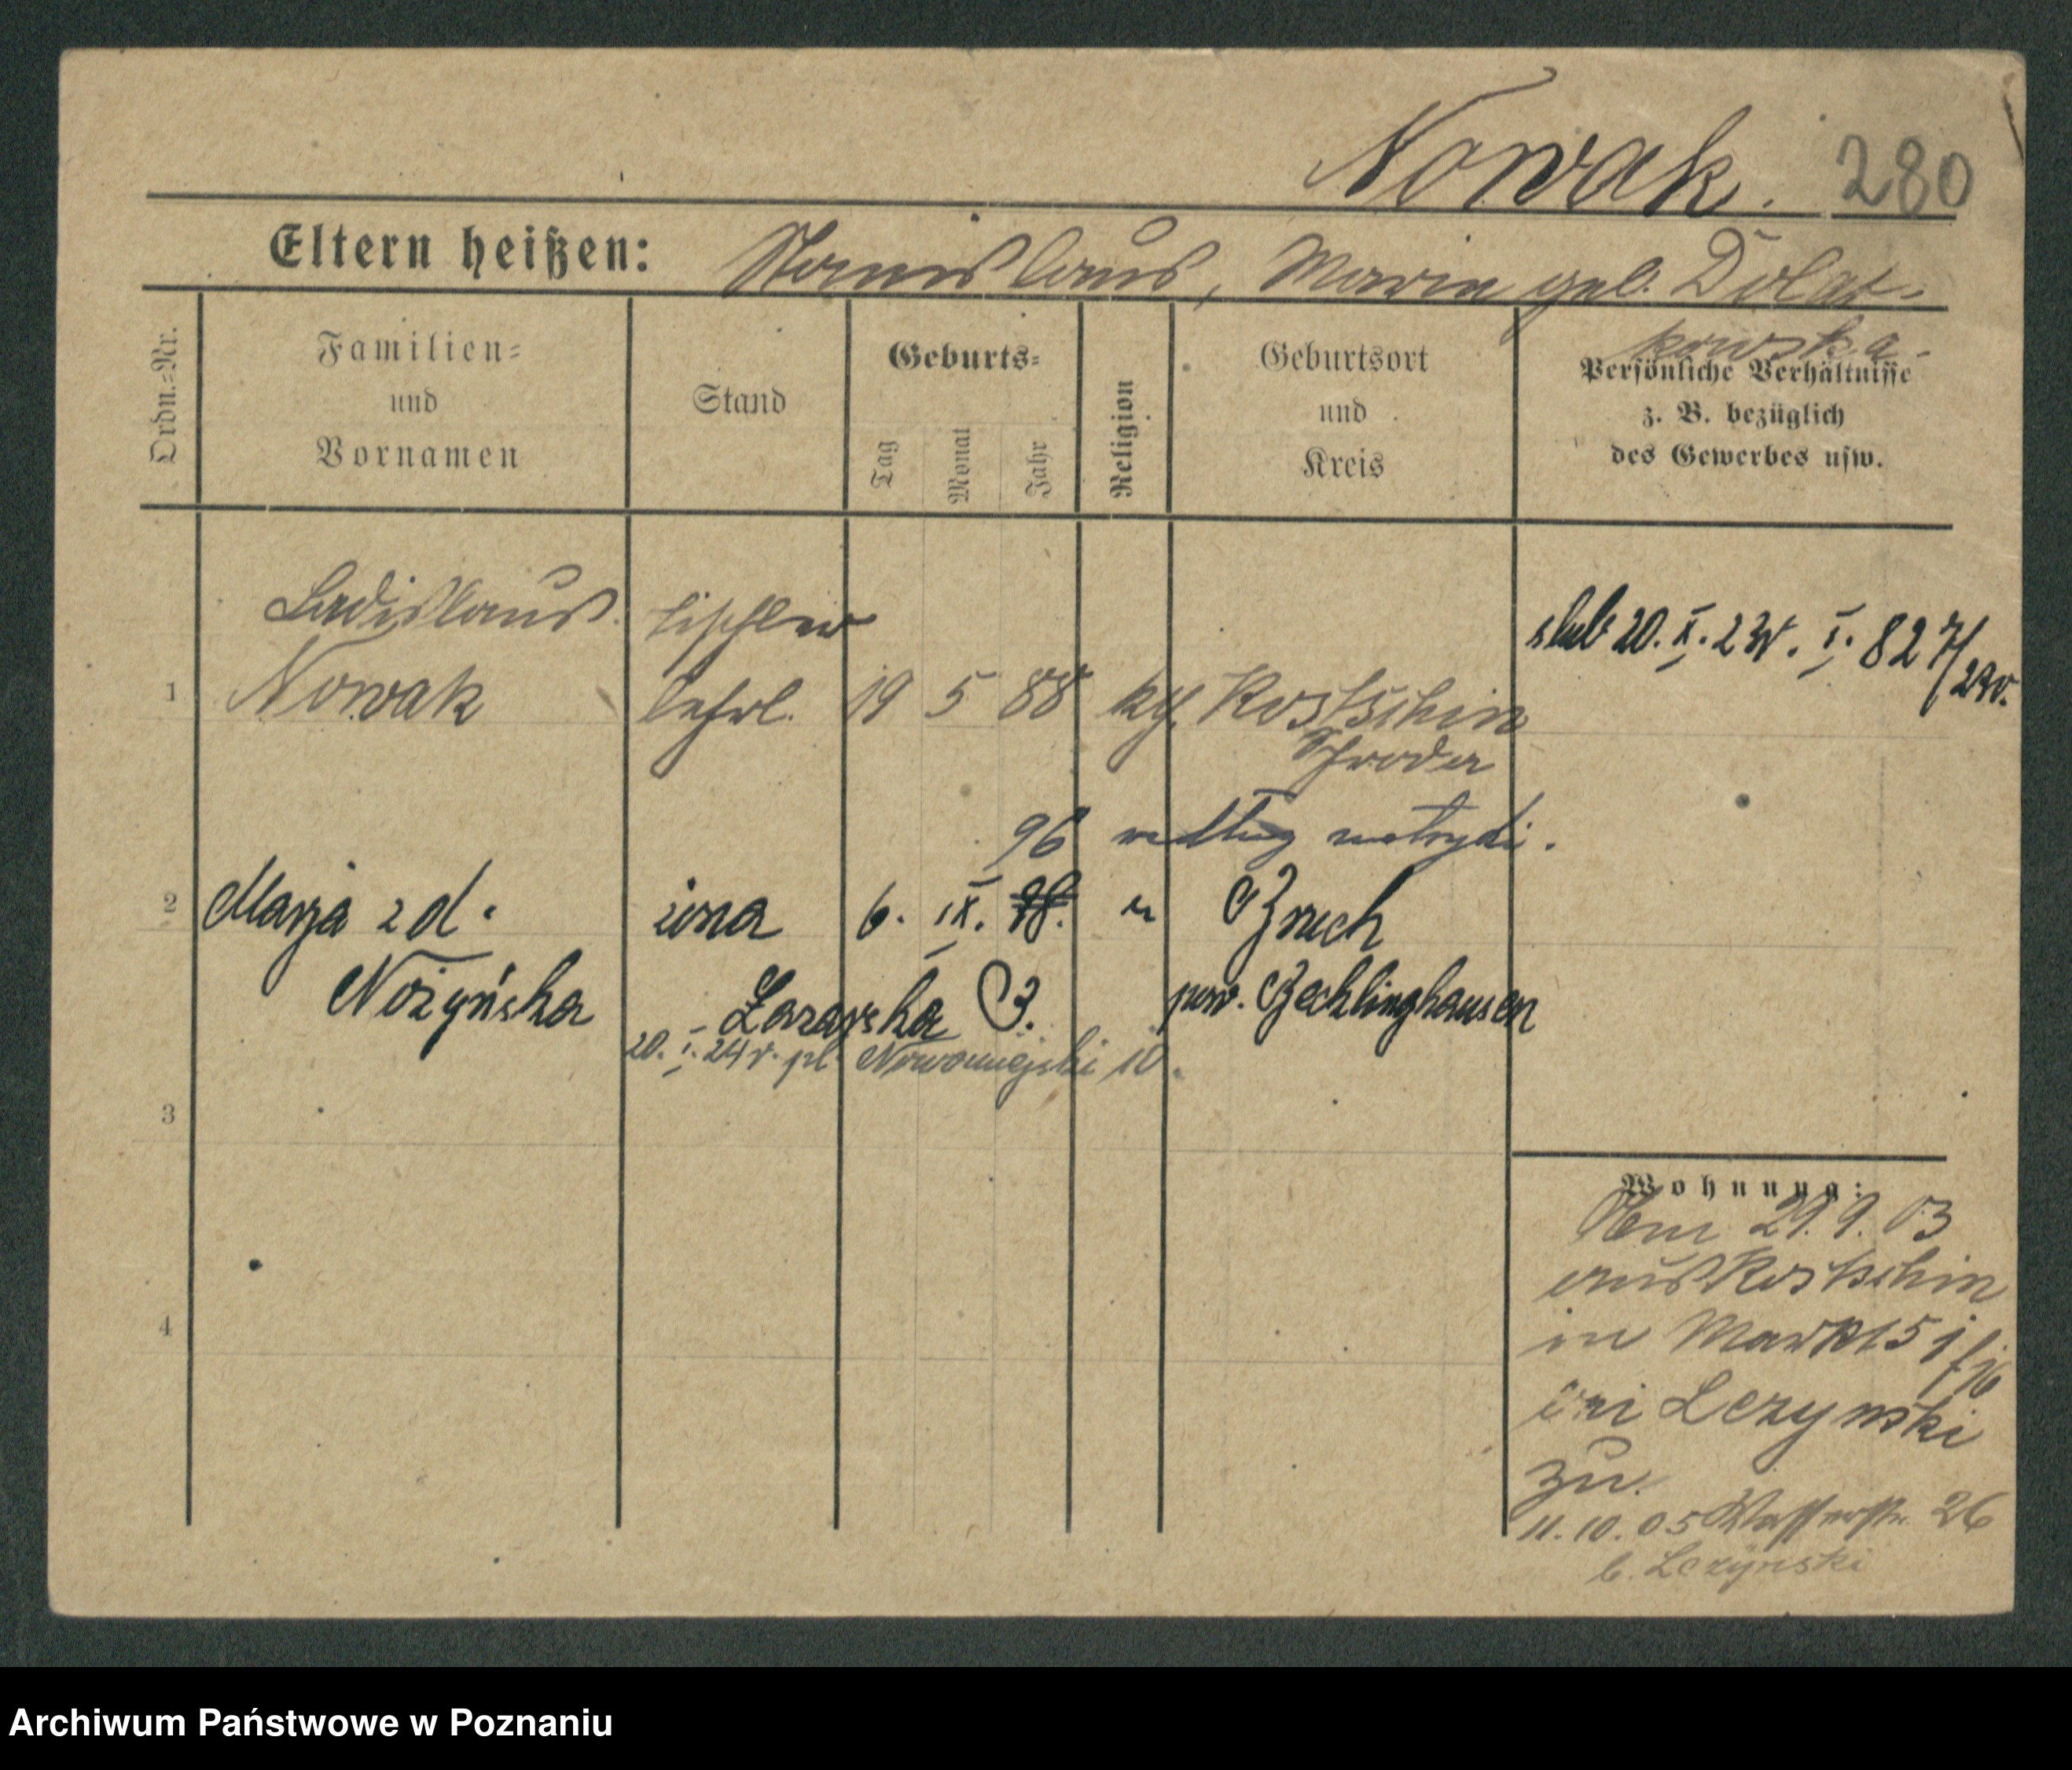 Nowak. 280
Eltern heißen: Stanislaus, Maria geb. Dolat-
kowska.
Ordn.=Nr.
Familien=
und
Vornamen
Stand
Geburts=
Tag
Monat
Jahr
Religion
Geburtsort
und
Kreis
Persönliche Verhältnisse
z. B. bezüglich
des Gewerbes usw.
Ladislaus Tischler
1 Nowak lehrl. 19 5 88 kth. Kostschin
Schroda
ślub 20. X. 23r. I. 827/
23r.
96 według metryki.
2 Marja z d. żona 6. IX. 98. " Bruch
Nożyńska pow. Recklinghausen
Łazarska 3.
20. I. 24 r. pl. Nowomiejski 10.
3
4
Wohnung:
Vom 29.9.03
aus Kostschin
in Markt 51
bei Lezynski
zu.
11.10.05 Wasserstr. 26
b. Lezynski
Archiwum Państwowe w Poznaniu